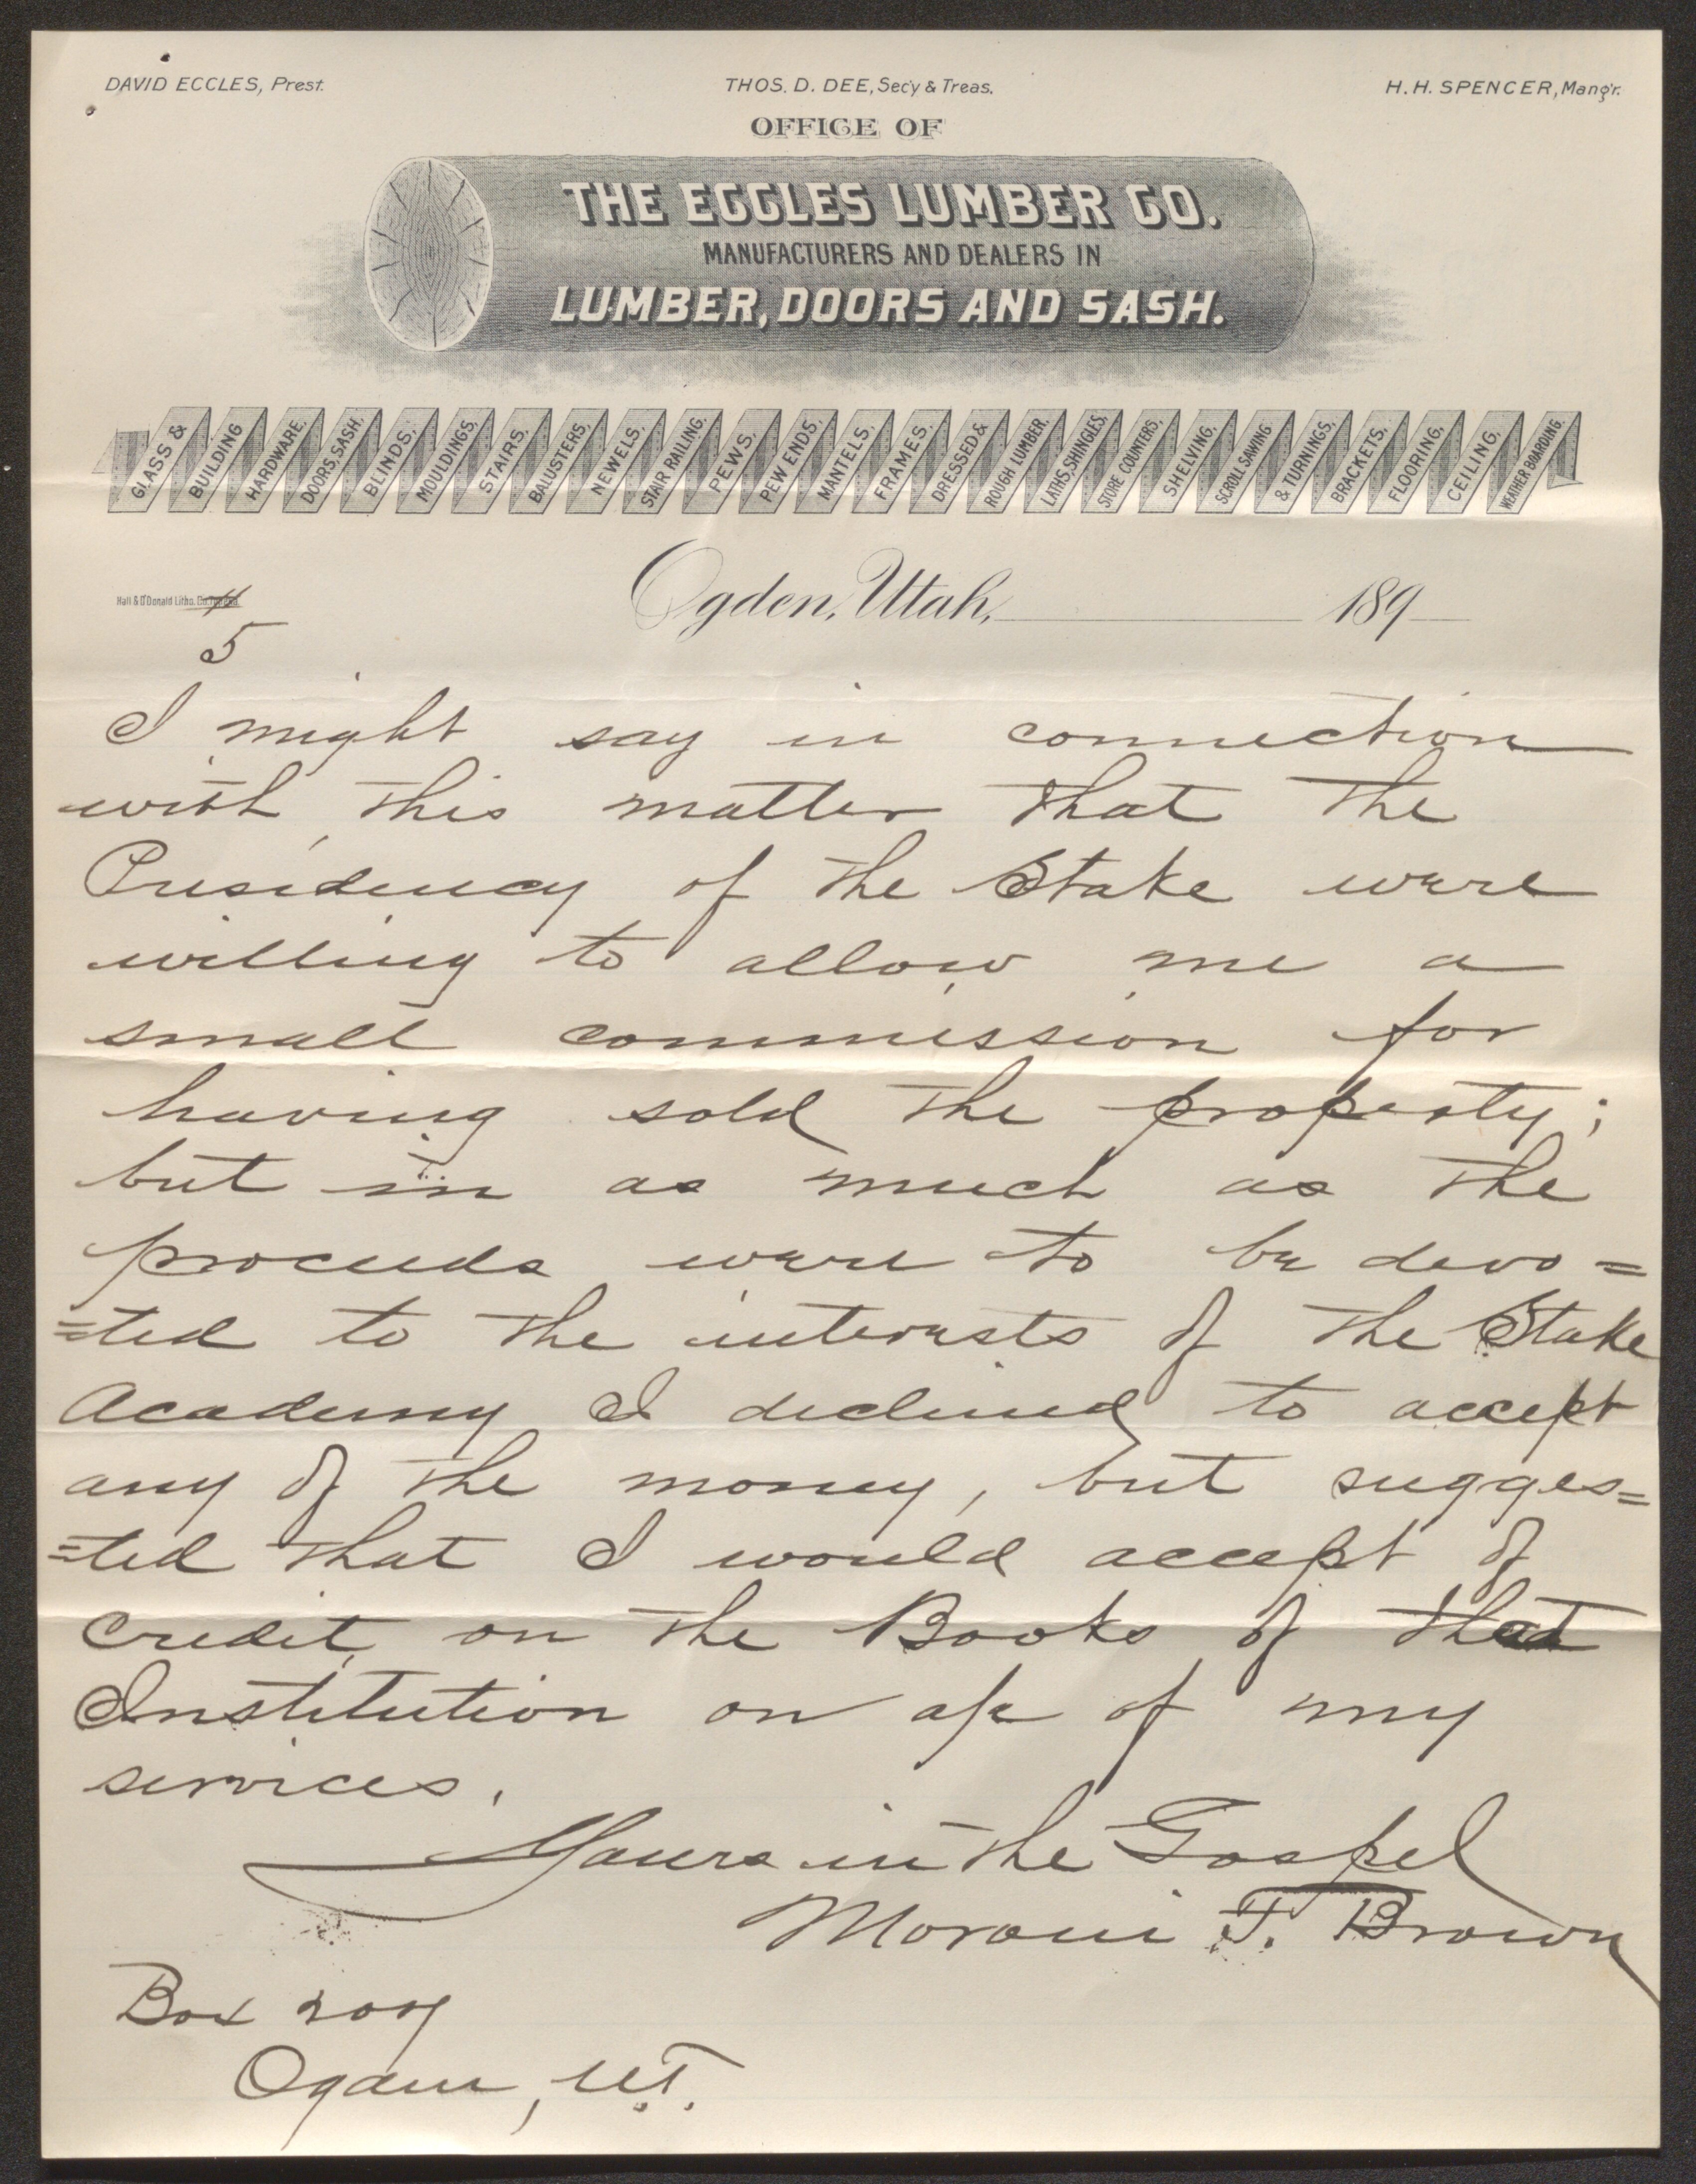 DAVID ECCLES, Prest.
THOS. D. DEE, Sec'y & Treas.
H. H. SPENCER, Mang'r.
OFFICE OF
THE ECCLES LUMBER CO.
MANUFACTURERS AND DEALERS IN
LUMBER, DOORS AND SASH.
GLASS & BUILDING HARDWARE. DOORS, SASH, BLINDS, MOULDINGS, STAIRS, BALUSTERS, NEWELS, STAIR RAILING, PEWS, PEW ENDS, MANTELS, FRAMES, DRESSED & ROUGH LUMBER, LATHS, SHINGLES, STORE COUNTERS, SHELVING, SCROLL SAWING & TURNINGS, BRACKETS, FLOORING, CEILING, WEATHER BOARDING.
Hall & O'Donald Litho. Co.
Ogden, Utah, 189
4
5
I might say in connection
with this matter that the
Presidency of the Stake were
willing to allow me a
small commission for
having sold the property;
but in as much as the
proceeds were to be devo=
=ted to the interests of the Stake
Academy I declined to accept
any of the money, but sugges=
=ted that I would accept of
credit on the Books of that
Institution on a/c of my
services.
Yours in the Gospel
Moroni F. Brown
Box
Ogden, U.T.